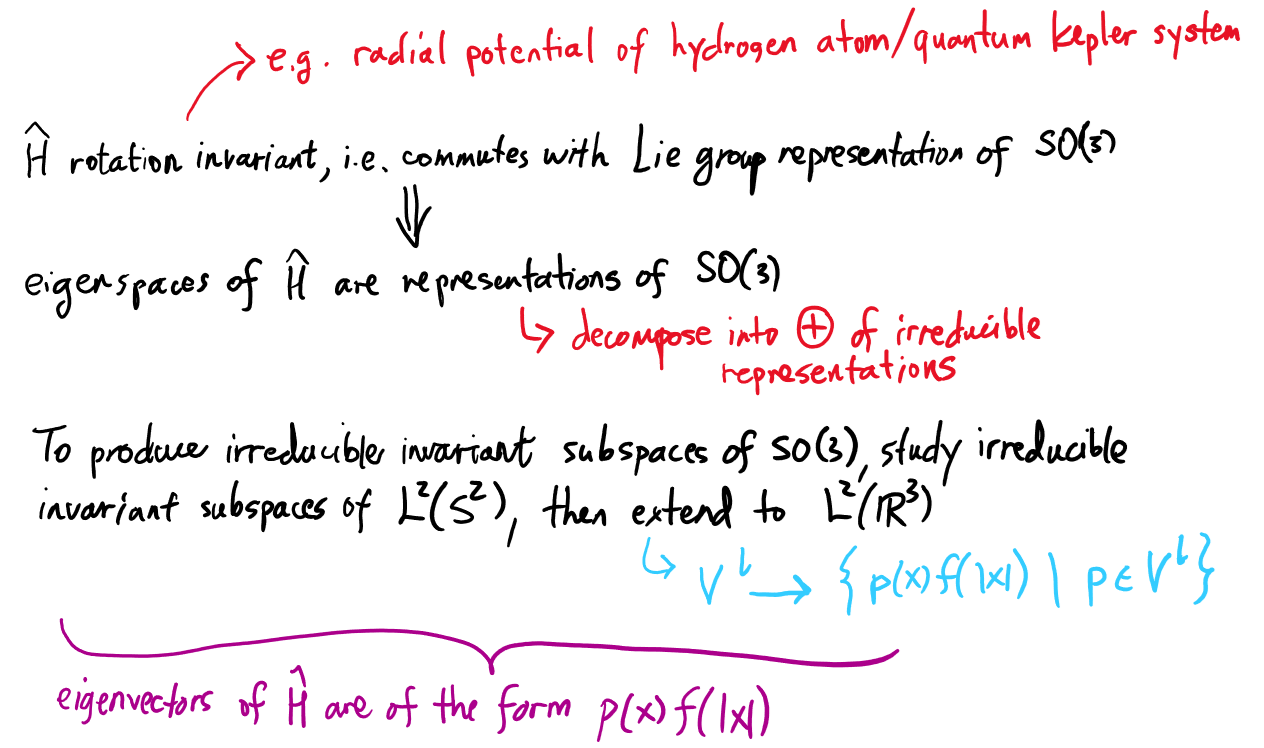 e.g. radial potential of hydrogen atom/quantum kepler system
Ĥ rotation invariant, i.e. commutes with Lie group representation of SO(3)
⇓
eigenspaces of Ĥ are representations of SO(3)
↳ decompose into ⊕ of irreducible
representations
To produce irreducible invariant subspaces of SO(3), study irreducible
invariant subspaces of L²(S²), then extend to L²(ℝ³)
↳ V^l → {p(x)f(|x|) | p∈V^l}
eigenvectors of Ĥ are of the form p(x)f(|x|)